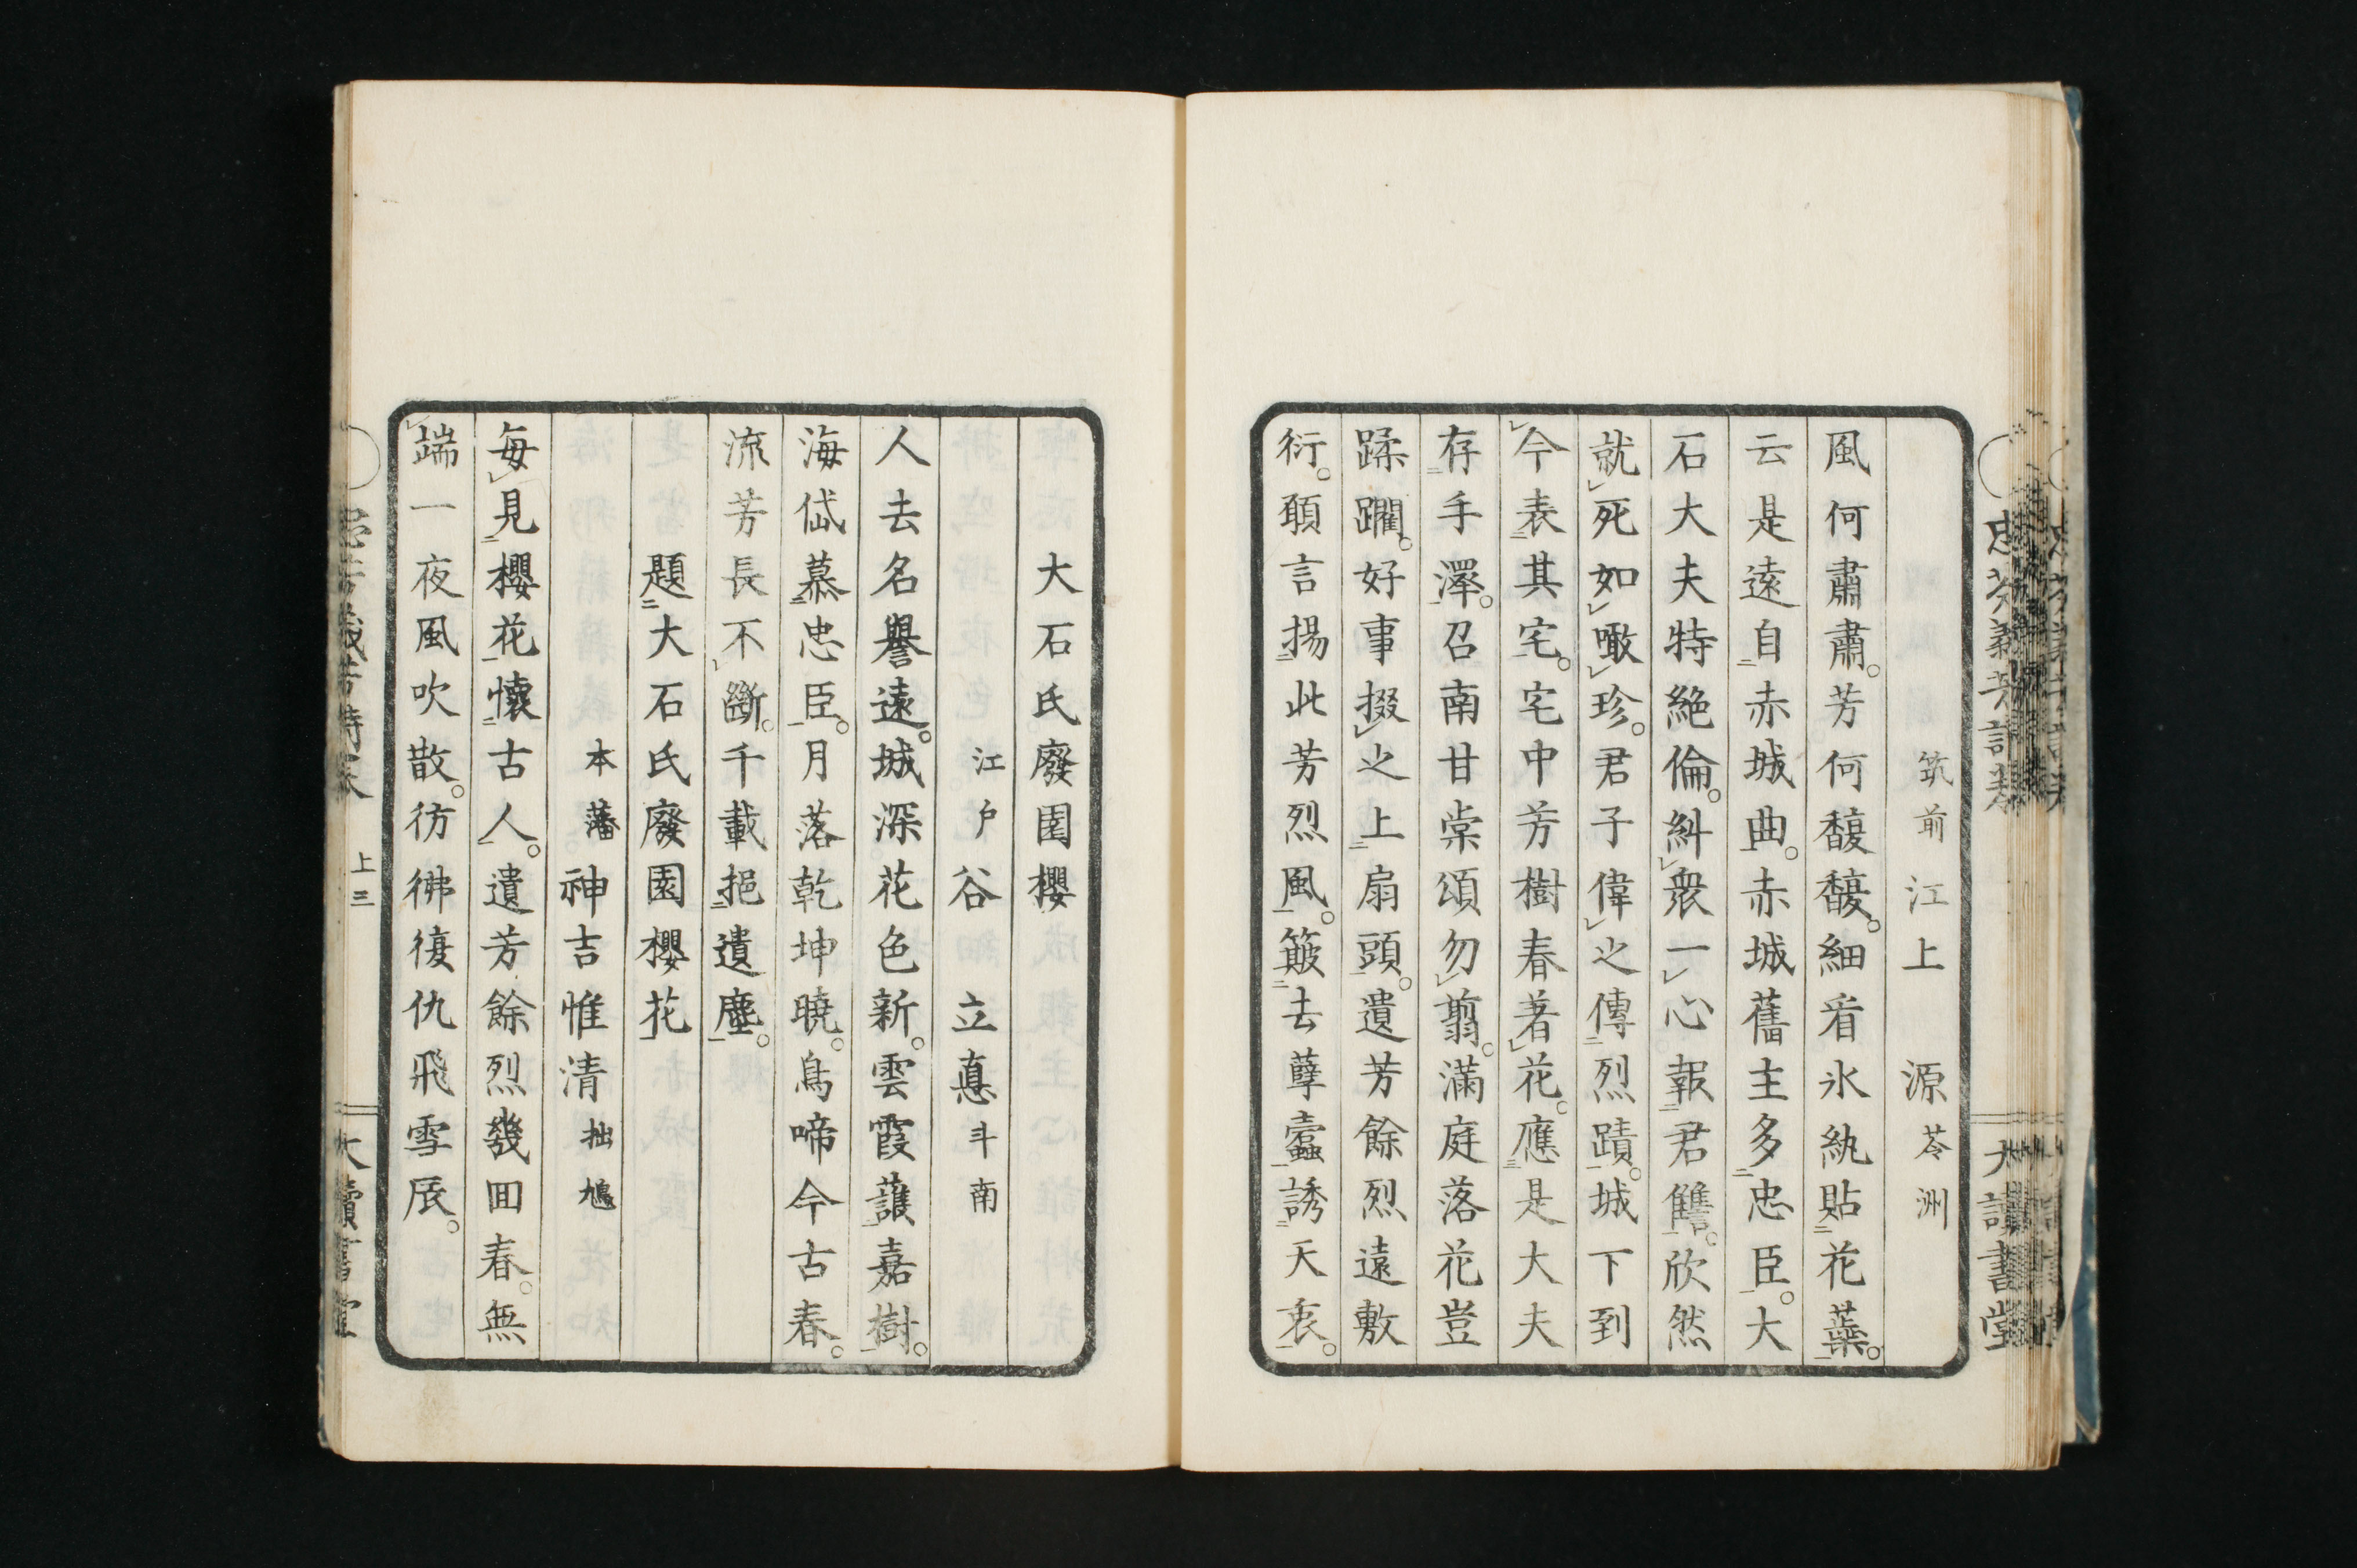 筑前 江上 源 苓洲
風何肅肅。芳何馥馥。細看氷紈貼花蘂。
云是遠自赤城曲。赤城舊主多忠臣。大
石大夫特絶倫。糾衆一心報君讎。欣然
就死如噉珍。君子偉之傳烈蹟。城下到
今表其宅。宅中芳樹春著花。應是大夫
存手澤。召南甘棠頌勿翦。滿庭落花豈
蹂躙。好事掇之上扇頭。遺芳餘烈遠敷
衍。願言揚此芳烈風。簸去孽蠹誘天衷。
大石氏廢園櫻
江戸 谷 立悳 斗南
人去名譽遠。城深花色新。雲霞護嘉樹。
海岱慕忠臣。月落乾坤曉。鳥啼今古春。
流芳長不斷。千載挹遺塵。
題大石氏廢園櫻花
本藩 神吉惟清 拙鳩
毎見櫻花懷古人。遺芳餘烈幾回春。無
端一夜風吹散。彷彿復仇飛雪辰。
上三